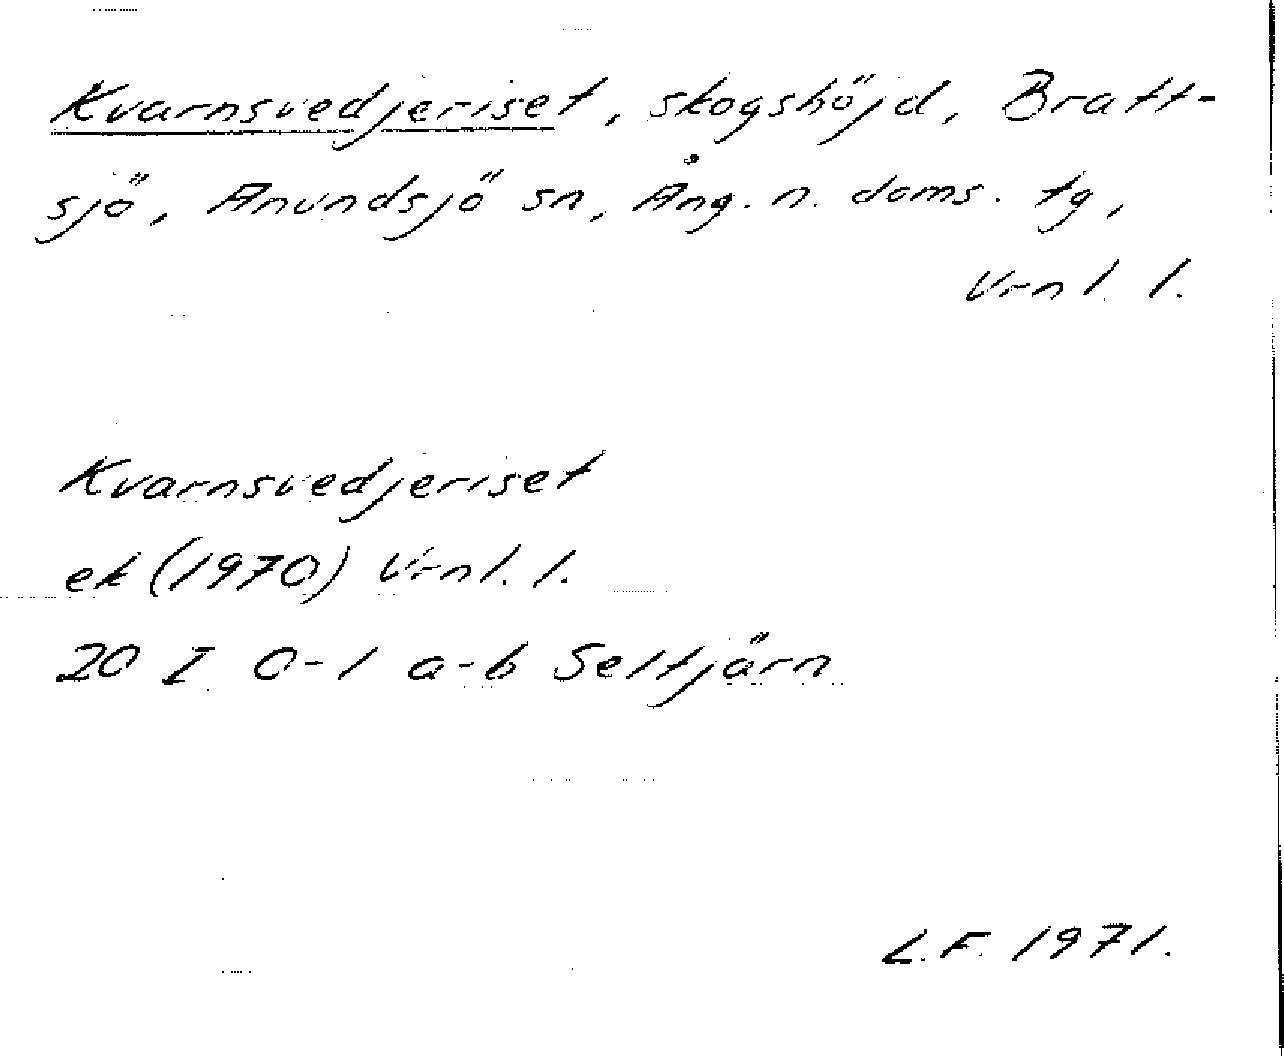 Kvarnsvedjeriset, skogshöjd, Bratt-
sjö, Anundsjö sn, Ång. n. doms. tg,
Vrnl. l.
Kvarnsvedjeriset
ek (1970) Vrnl. l.
20 I 0-1 a-b Seltjärn
L.F. 1971.